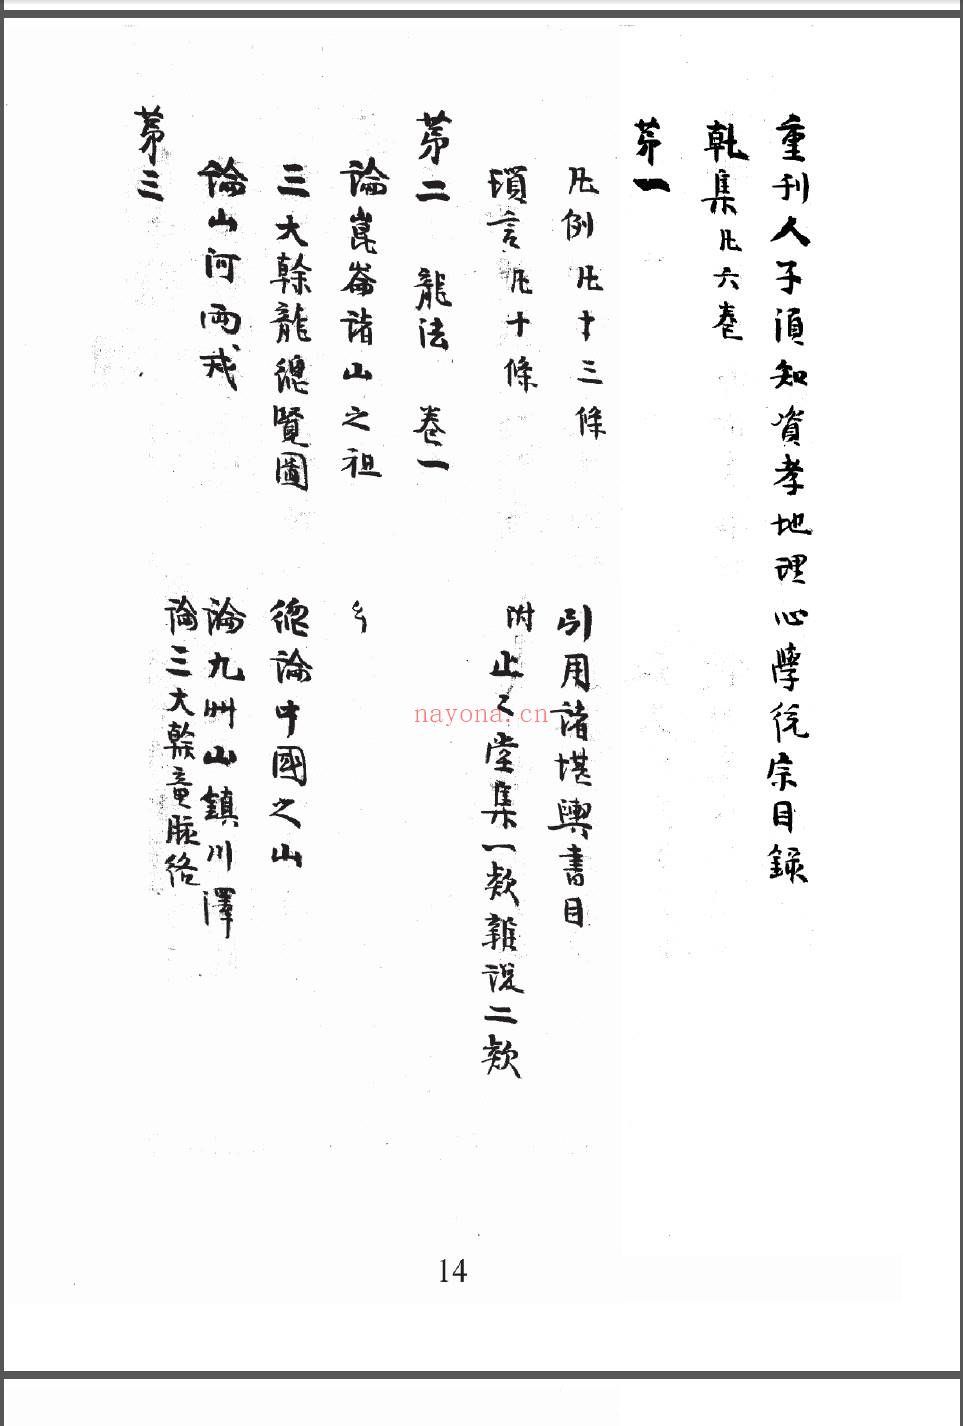 重刊人子須知資孝地理心學統宗目録
乾集凡六卷
苐一
凡例凡十三條
引用諸堪輿書目
瑣言凡十條
附
止止堂集一欵雜說二欵
苐二 龍法 卷一
論崑崙諸山之祖
三大幹龍總覽圖
總論中國之山
論山河兩戒
論九州山鎮川澤
論三大幹竜脈絡
苐三
nayona.cn
14